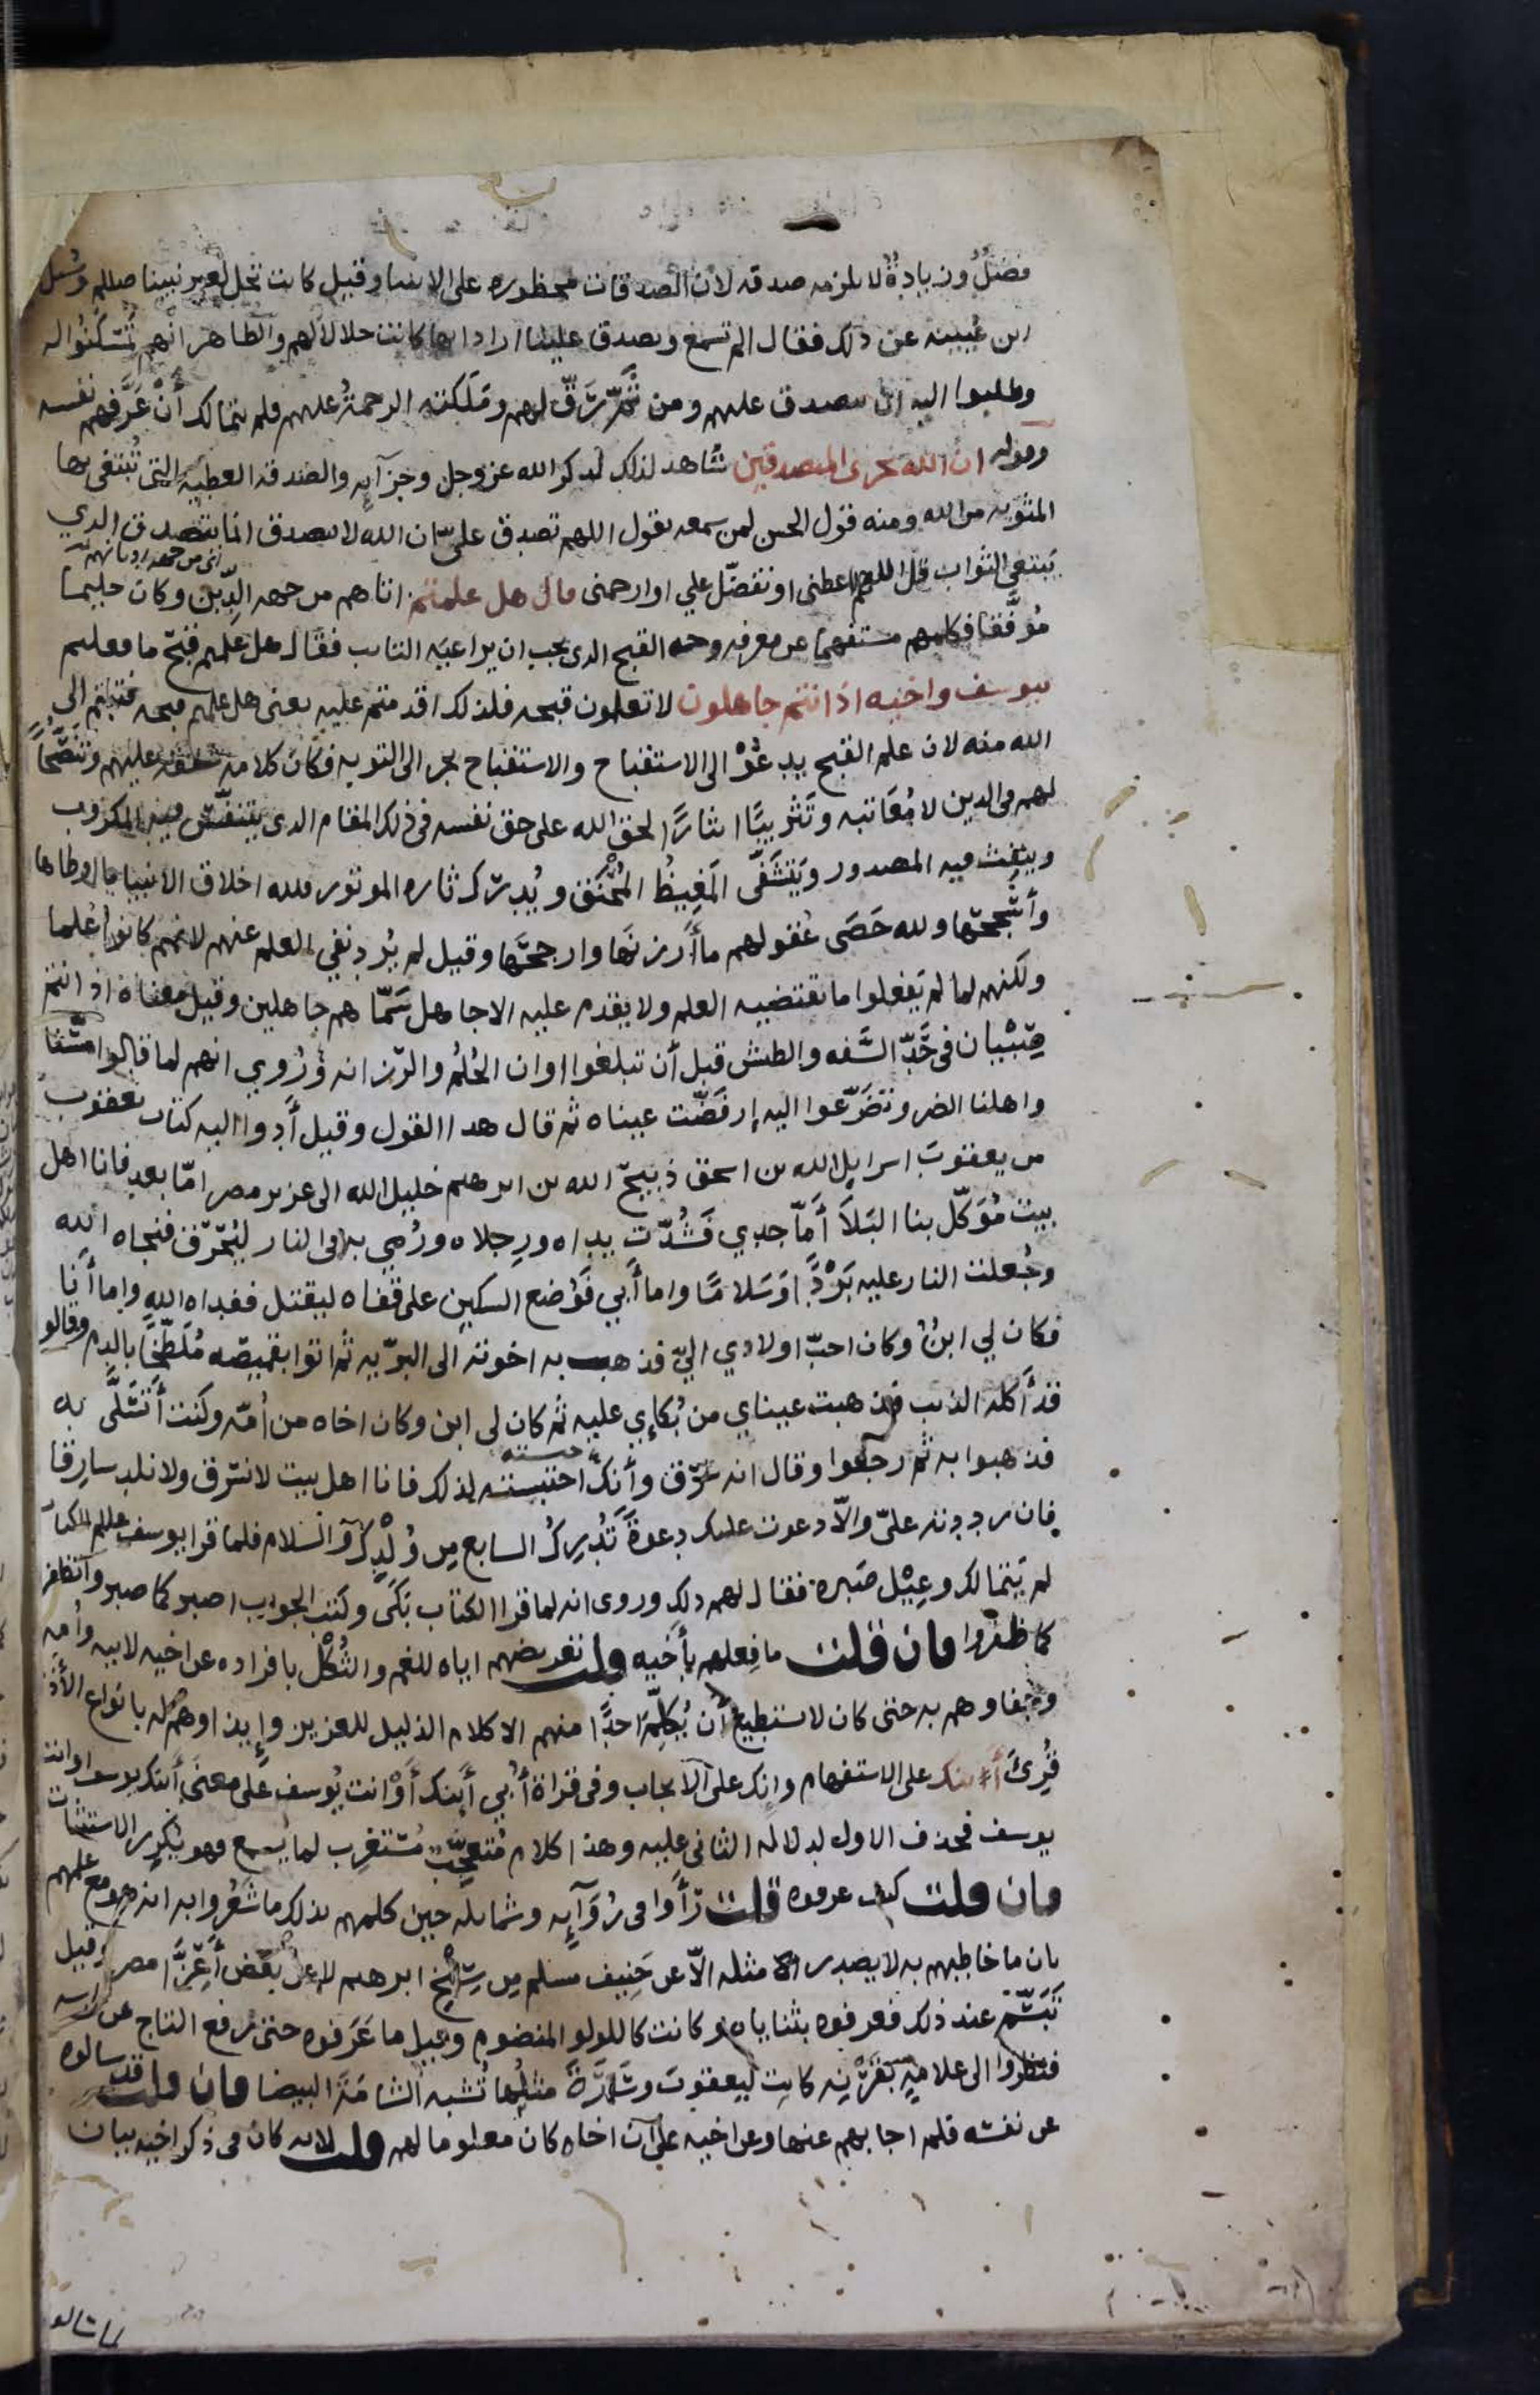 فضل وزيادة لا يلزمه صدقه لان الصدقات محظوره على الانبيا وقيل كانت تحل لغير نبينا صللم وسئل
ابن عيينه عن ذلك فقال الم تسمع وتصدق علينا اراد انها كانت حلالا لهم والظاهر انهم تمسكنوا له
وطلبوا اليه ان يتصدق عليهم ومن ثم رق لهم وملكته الرحمة عليهم فلم يتمالك أن عرفهم نفسه
وقوله ان الله يجزى المتصدقين شاهد لذلك لذكر الله عز وجل وجزآيه والصدقه العطيه التي تبتغى بها
المثوبه من الله ومنه قول الحسن لمن سمعه يقول اللهم تصدق علىّ ان الله لا يتصدق انما يتصدق الذي
يبتغى الثواب قل اللهم اعطنى او تفضّل علي او ارحمنى قال هل علمتم اتاهم من جهه الدّين وكان حليما
موفّقا فكلمهم مستفهما عن معرفه وجه القبح الذى يجب ان يراعيَه التايب فقال هل علمتم قبح ما فعلتم
بيوسف واخيه اذ انتم جاهلون لا تعلمون قبحه فلذلك اقدمتم عليه يعنى هل علمتم قبحه فتبتم الى
الله منه لان علم القبح يدعُوْ الى الاستقباح والاستقباح يجر الى التوبه فكان كلامه شفقة عليهم وتنصّحاً
لهم فى الدين لا مُعَاتبه وتَثْريبًا ايثارًا لحق الله على حق نفسه فى ذلك المقام الذى يتنفّس فيه المكروب
وينفث فيه المصدور ويَتشَفّى المَغِيظُ المُحْنَق ويُدرك ثاره الموتور فلله اخلاق الانبيا ما اوطاها
وأسْجحَها ولله حَصَى عُقولهم ما أرزنَها وارجحَها وقيل لم يُرد نفي العلم عنهم لانهم كانوا عُلما
ولكنهم لما لم يَفعلوا ما يقتضيه العلم ولا يقدم عليه الا جاهل سَمّاهم جاهلين وقيل معناه اذ انتم
صِبْيان فى حَدّ السَّفه والطيش قبل أن تبلغوا اوان الحُلُم والرّزانه ورُوي انهم لما قالوا مسّنا
واهلنا الضر وتضَرّعوا اليه إرفَضّت عيناه ثم قال هذا القول وقيل أدوا اليه كتاب يعقوب
من يعقوبَ اسرايل الله بن اسحق ذبيح الله بن ابرهيم خليل الله الى عزيز مصر امّا بعد فانا اهل
بيت مُوَكّل بنا البَلآ أَمّا جدي فَشُدّت يداه ورِجلاه ورُمي به فى النار ليُحَرّق فنجاه الله
وجُعلت النار عليه بَرْدًا وَسَلامًا واما أبي فوُضع السكين على قفاه ليقتل ففداه الله واما أنا
فكان لي ابنٌ وكان احبّ اولادي اليّ فذهب به اخوته الى البرّيه ثم اتوا بقميصه مُلَطّخًا بالدم وقالوا
قد أكله الذيب فذهبت عيناي من بُكاءِي عليه ثم كان لى ابن وكان اخاه من أمّه وكنت أتسلّى به
فذهبوا به ثم رجعوا وقال انه سَرَق وأنك احتبسته لذلك فانا اهل بيت لا نسرق ولا نلد سارقا
فان رددته علىّ والاّ دعوت عليك دعوةً تُدرِكُ السابع مِن وُلْدِكَ والسلام فلما قرا يوسف الكتاب
لم يَتمالك وعِيْل صَبره فقال لهم ذلك وروى انه لما قرا الكتاب بَكَى وكتب الجواب اصبر كما صبروا تظفر
كما ظفروا فان قلت ما فِعلهم بأخيه قلت تعريضهم اياه للغم والثُكْل بافراده عن اخيه لابيه وأمه
وجفاوهم به حتى كان لا يستطيع أن يُكلّم احدًا منهم الا كلام الذليل للعزيز وإيذاوهم له بانواع الأذى
قُرِئَ أءِنك على الاستفهام وإنك على الايجاب وفى قراة أُبي أينك أوْ انت يُوسف على معنَى أينك يوسف او انت
يوسف فحذف الاول لدلاله الثانى عليه وهذا كلام مُتعجّبٍ مُستغرِب لما يسمع فهو يُكرر الاستثبات
فان قلت كيف عرفوه قلت رَأَوا فى رُوَآيِه وشمايله حين كلمهم بذلك ما شَعُروا به انه هو مع علمهم
بان ما خاطبهم به لا يصدر مثله الاّ عن حَنِيف مسلم مِن سِنْخ ابرهيم لا عن بعَض أعِزّا مصر وقيل
تَبَسّم عند ذلك فعرفوه بثناياه وكانت كاللولو المنضوم وقيل ما عَرَفوه حتى رفع التاج عن راسه
فنظروا الى علامةٍ بقَرْنِه كانت ليعقوبَ وسَارَةَ مثلُها تُشبه الشامَةَ البيضا فان قلت قد سالوه
عن نفسه فلم اجابهم عنها وعن اخيه على أن اخاه كان معلوما لهم قلت لانه كان فى ذكر اخيه بيان
لما سالوه